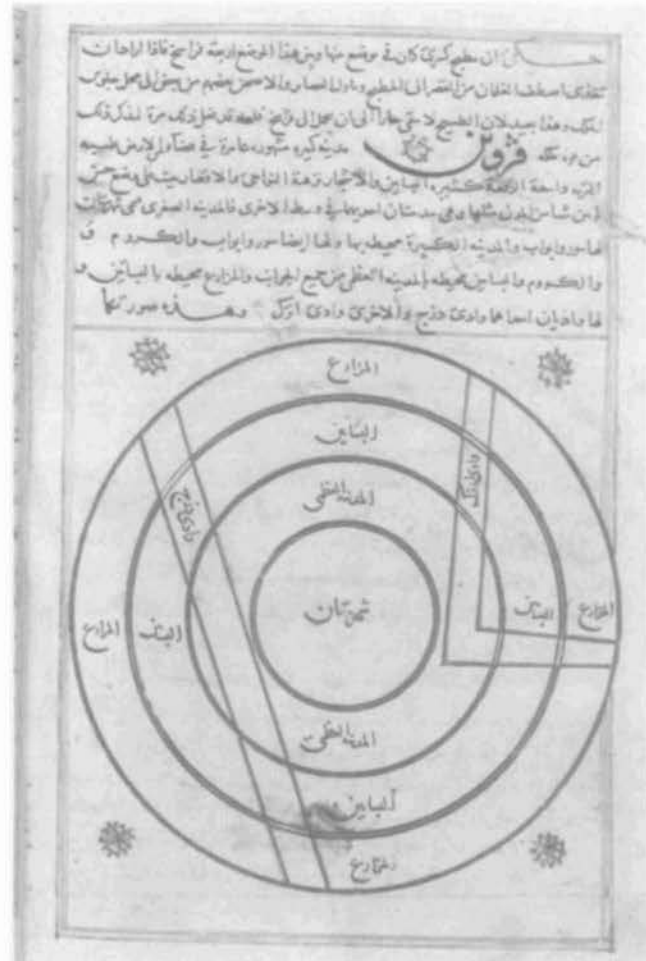 ان مطبخ كسرى كان في موضع منها وبين هذا الموضع اربعة فراسخ فاذا اراد ان
اصطف الغلمان من القصر الى المطبخ بعضهم من بعض الى
الملك وهذا بعيد لان الطبيخ لا يبقى حارا الى ان يحمل الى فراسخ فلعله قد فعل ذلك مرة ذلك
من ملكه قزوين مدينه كبيره مشهوره عامرة في فضاء من الارض طيبه
التربه واسعة الرقعة كثيرة البساتين والاشجار نزهة النواحي والاقطار بنيت على وضع حسن
من المدن مثلها وهى مدينتان احديهما في وسط الاخرى فالمدينه الصغرى تسمى شهرستان
لها سور وابواب والمدينه الكبيرة محيطه بها ولها ايضا سور وابواب والكروم
والكروم والبساتين محيطه بالمدينه العظمى من جميع الجوانب والمزارع محيطه بالبساتين و
لها واديان احداهما وادى درج والاخرى وادى اترك وهذه صورتها
المزارع
البساتين
المدينه العظمى
وادى اترك
وادى درج
شهرستان
المزارع
البساتين
البساتين
المزارع
المدينه العظمى
البساتين
المزارع